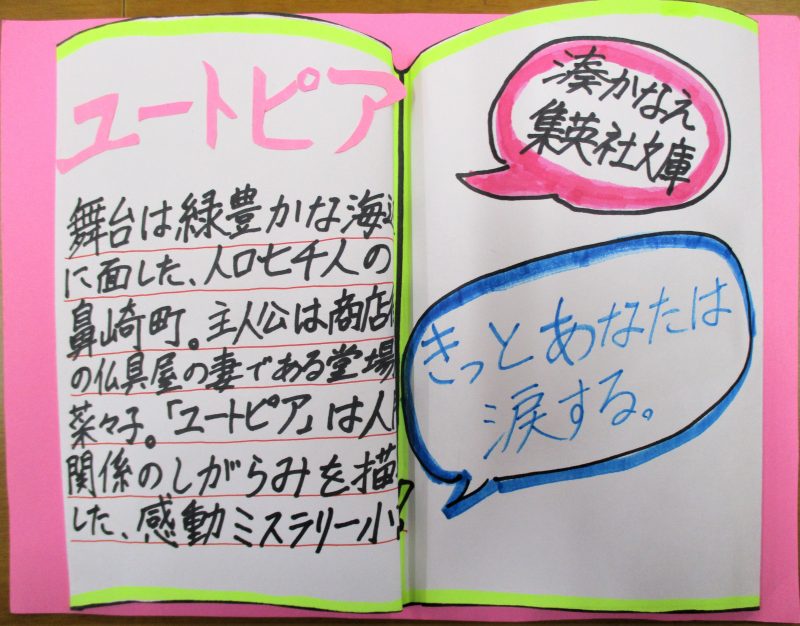 ユートピア
舞台は緑豊かな海
に面した、人口七千人の
鼻崎町。主人公は商店
の仏具屋の妻である堂場
菜々子。「ユートピア」は人
関係のしがらみを描
した、感動ミスラリー小
湊かなえ
集英社文庫
きっとあなたは
涙する。